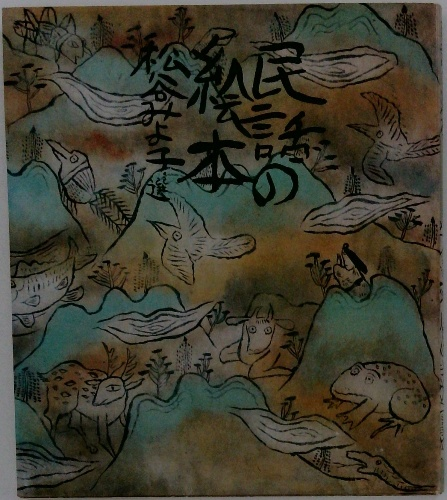 民話の
絵本
松谷みよ子選